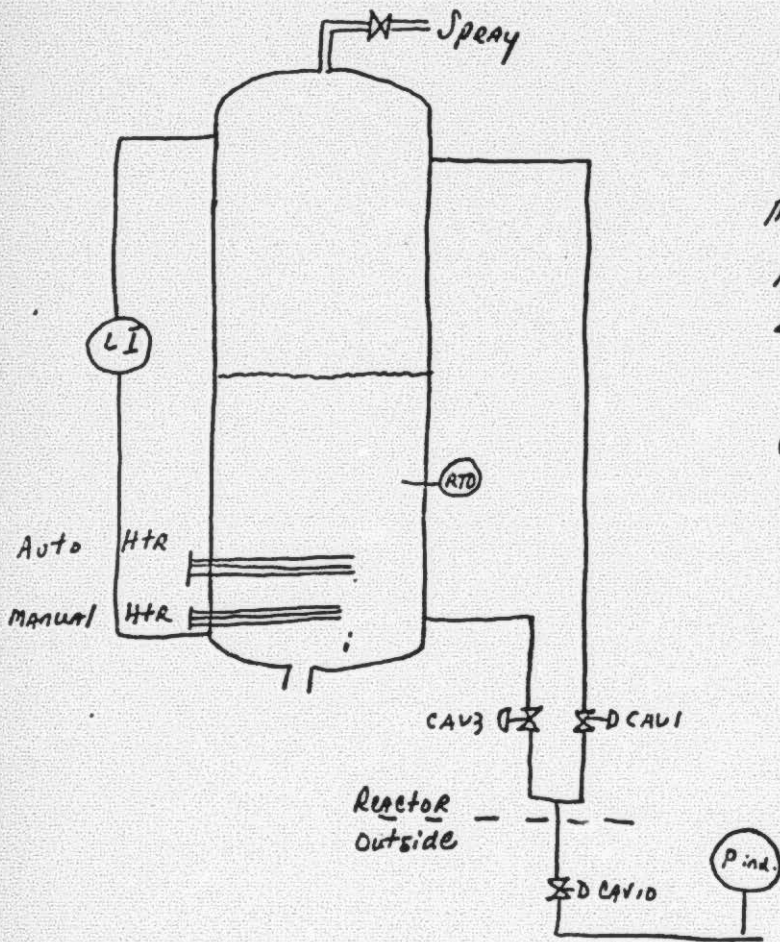 Spray
LI
RTD
Auto HtR
MANUAL HtR
CAV3
CAV1
REACtOR
Outside
CAV10
P ind.